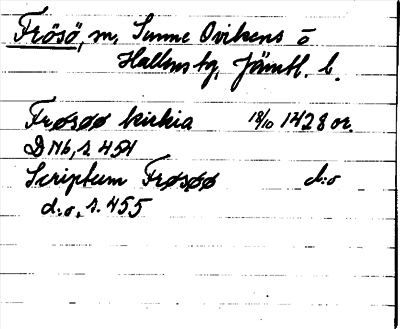 Frösö, m, Sunne Ovikens o
Hallens tg, Jämtl. l.
Frøsøø kirkia 18/10 1428 or.
D N 16, s. 454
Scriptum Frøsøø d:o
d:o, s. 455